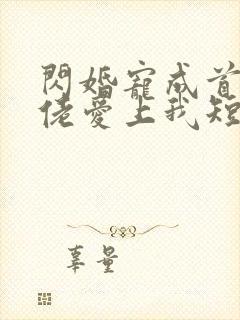 閃婚寵成首
佬愛上我短
辜量